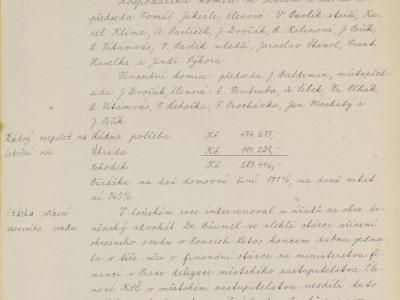 hospodářská komise
předseda Tomáš Jekerle, členové: V. Pavlík starší, Ka-
rel Klíma, A. Pavlíček, J Dvořák, R. Kalinová, J Cvik,
L Vitámvás, V. Pavlík mladší, Jaroslav Stanol, Frant.
Havelka a Jindř. Sýkora.
Finanční komise: předseda J. Baldeman, místopřed-
seda J Dvořák členové: E. Ventruba, A Šebek, Fr. Plhák,
L. Vitámvás, F. Řehořka, F Procházka, Jan Machatý a
J. Cvik.
Řádný rozpočet na Řádná potřeba Kč 474 675,-
letošní rok Úhrada Kč 191 229,-
Schodek Kč 283 446,-
Přirážka na daň domovní činí 171%, na daně ostat
ní 365%.
Otázka zřízení V loňském roce intervenoval u úřadů za obec
okresního soudu advokát Dr. Bäumel ve vleklé otázce zřízení
okresního soudu v Letos koncem dubna jedna-
la v téže věci o finanční otázce na ministerstvu fi-
nancí v Praze delegace městského zastupitelstva. Čle-
nové KSČ v městském zastupitelstvu nesdílí tuto